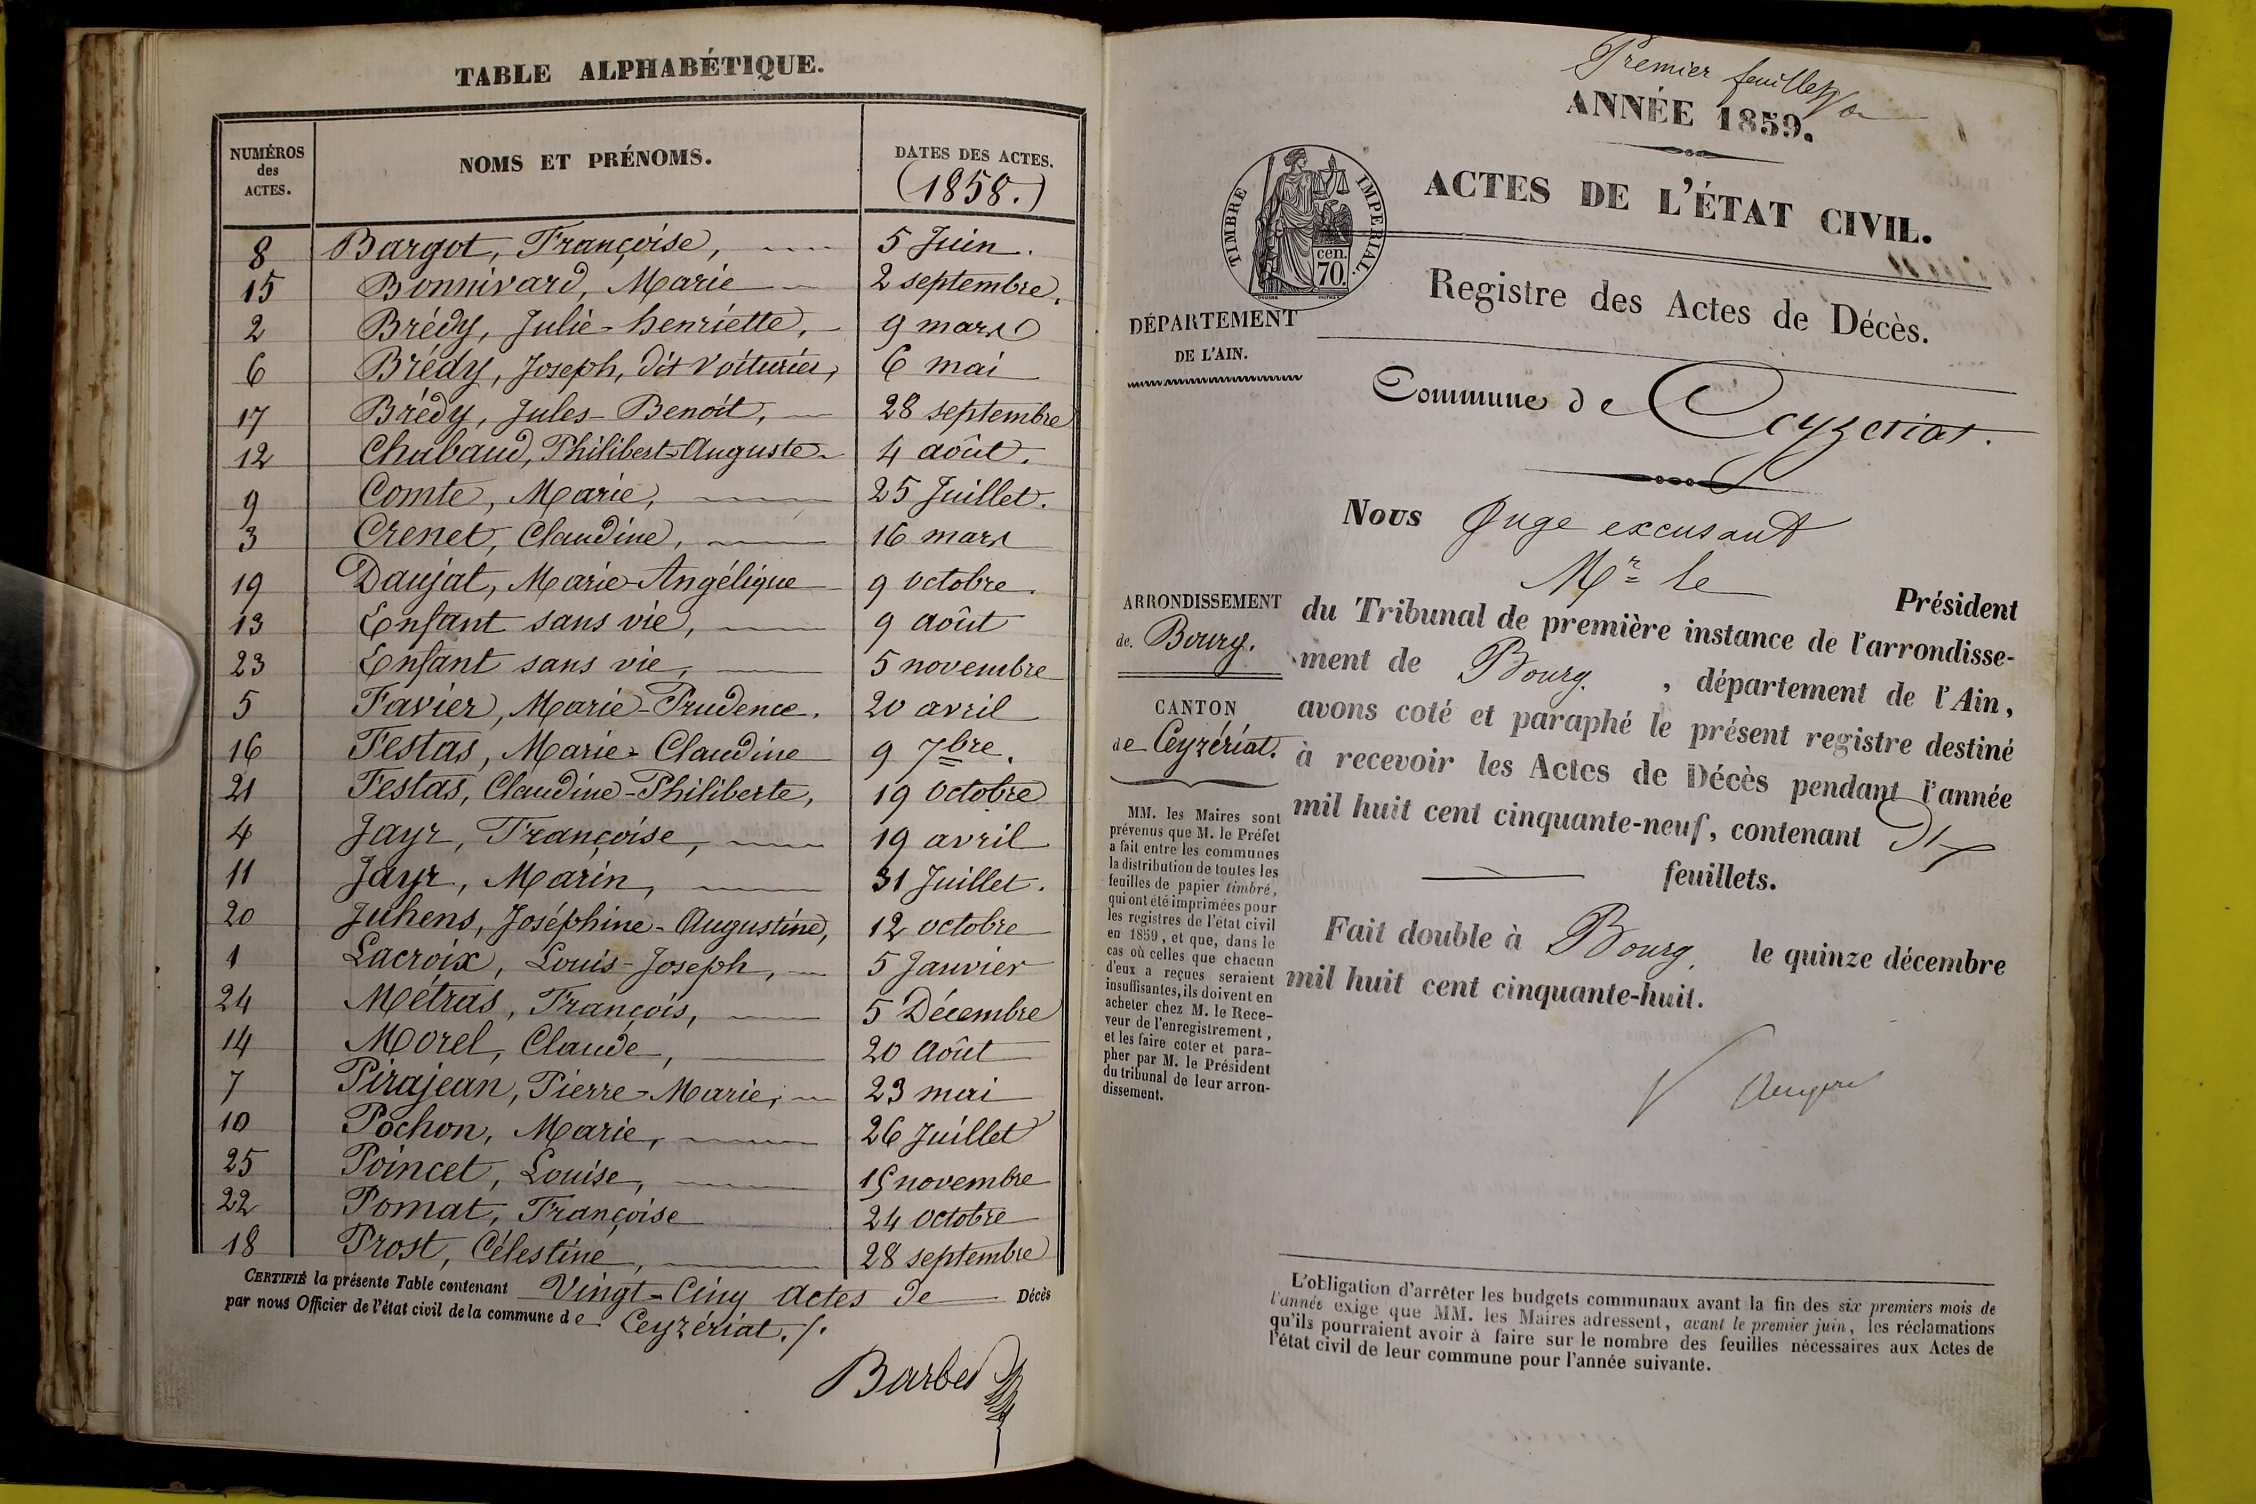 TABLE ALPHABÉTIQUE.
NUMÉROS des ACTES. NOMS ET PRÉNOMS. DATES DES ACTES. (1858.)
8 Bargot, Françoise, 5 Juin.
15 Bonnivard, Marie 2 septembre.
2 Brédy, Julie-henriette, 9 mars
6 Brédy, Joseph, dit Voiturier, 6 mai
17 Brédy, Jules-Benoît, 28 septembre
12 Chabaud, Philibert-Auguste 4 août.
9 Comte, Marie, 25 Juillet.
3 Crenet, Claudine, 16 mars
19 Daujat, Marie-Angélique 9 octobre.
13 Enfant sans vie, 9 août
23 Enfant sans vie, 5 novembre
5 Favier, Marie-Prudence. 20 avril
16 Festas, Marie-Claudine 9 7bre.
21 Festas, Claudine-Philiberte, 19 octobre
4 Jayr, Françoise, 19 avril
11 Jayr, Marin, 31 Juillet.
20 Juhens, Joséphine-Augustine, 12 octobre
1 Lacroix, Louis-Joseph, 5 Janvier
24 Métras, François, 5 Décembre
14 Morel, Claude, 20 Août
7 Pirajean, Pierre-Marie, 23 mai
10 Pochon, Marie, 26 Juillet
25 Poincet, Louise, 15 novembre
22 Pomat, Françoise 24 octobre
18 Prost, Célestine, 28 septembre
CERTIFIÉ la présente Table contenant Vingt-Cinq actes de Décès
par nous Officier de l'état civil de la commune de Ceyzériat./.
Barbet
Premier feuillet
ANNÉE 1859.
ACTES DE L'ÉTAT CIVIL.
TIMBRE IMPERIAL.
cen. 70.
Registre des Actes de Décès.
DÉPARTEMENT
DE L'AIN.
Commune de Ceyzeriat.
Nous Juge excusant
Mr le Président
ARRONDISSEMENT
de Bourg.
du Tribunal de première instance de l'arrondisse-
ment de Bourg, département de l'Ain,
CANTON
de Ceyzériat.
avons coté et paraphé le présent registre destiné
à recevoir les Actes de Décès pendant l'année
mil huit cent cinquante-neuf, contenant Dix
feuillets.
MM. les Maires sont
prévenus que M. le Préfet
a fait entre les communes
la distribution de toutes les
feuilles de papier timbré,
qui ont été imprimées pour
les registres de l'état civil
en 1859, et que, dans le
cas où celles que chacun
d'eux a reçues seraient
insuffisantes, ils doivent en
acheter chez M. le Rece-
veur de l'enregistrement,
et les faire coter et para-
pher par M. le Président
du tribunal de leur arron-
dissement.
Fait double à Bourg, le quinze décembre
mil huit cent cinquante-huit.
L'obligation d'arrêter les budgets communaux avant la fin des six premiers mois de
l'année exige que MM. les Maires adressent, avant le premier juin, les réclamations
qu'ils pourraient avoir à faire sur le nombre des feuilles nécessaires aux Actes de
l'état civil de leur commune pour l'année suivante.